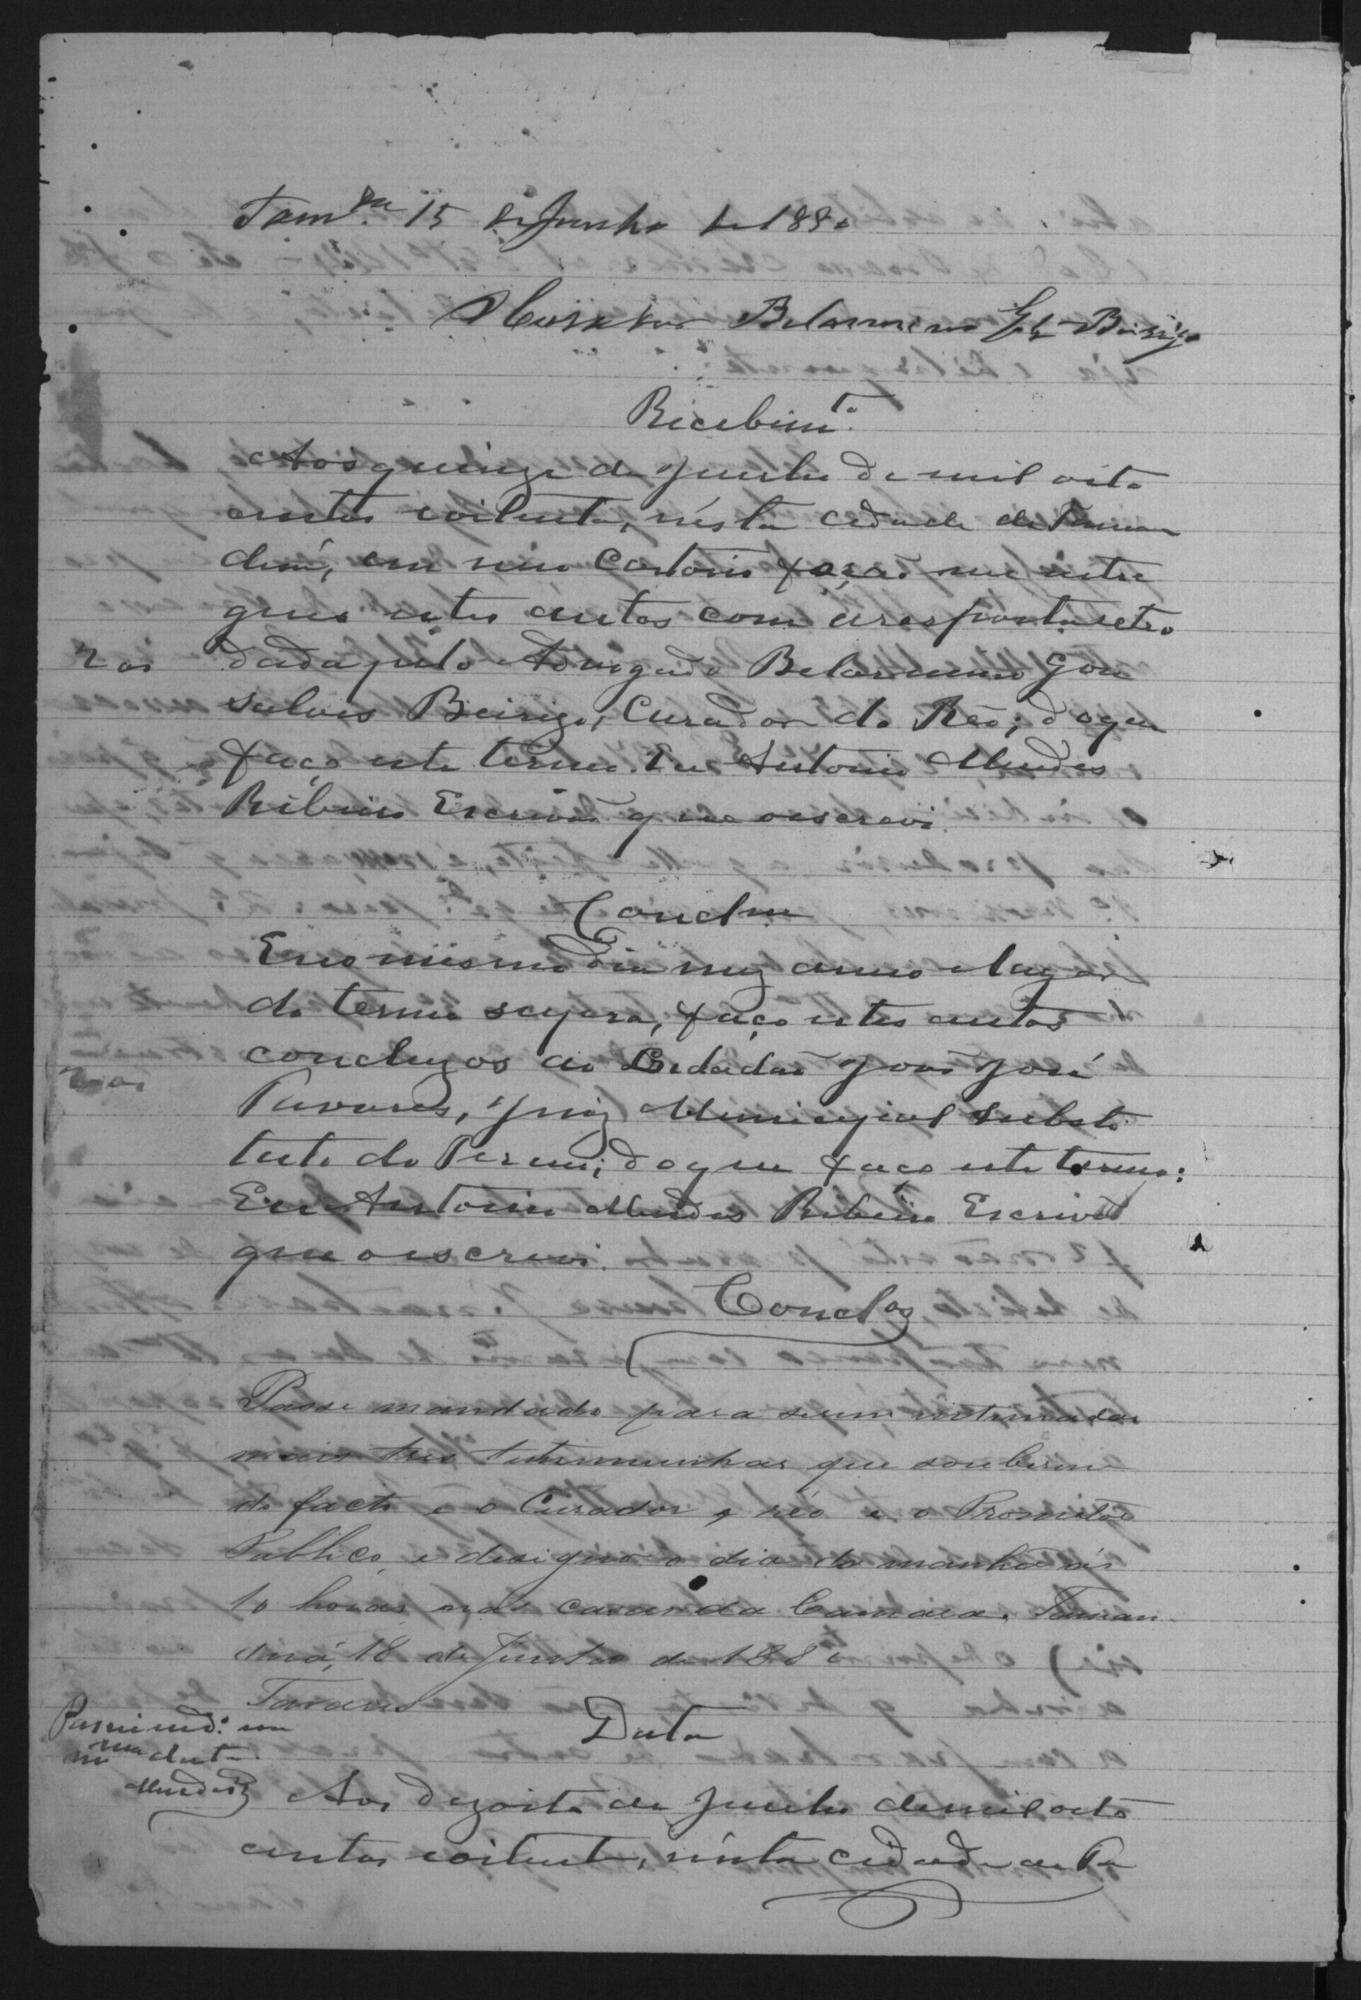 Tamd.ra 15 de Junho de 1880
O Curador Belarmino Glz Beirigo
Recebimto.
Aos quinze de Junho de mil oito
centos e oitenta, nésta cidade de Taman
duá, em meu Cartorio forão me entre
gues estes autos com a resposta retro
dada pelo Advogado Belarmino Gon
salves Beirigo, Curador do Réo; do que
faço este termo. Eu Antonio Mendes
Ribeiro Escrivão que o escrevi.
200
Conclm
E no mesmo dia mez anno e lugar
do termo supra, faço estes autos
concluzos ao Cidadão João José
200
Tavares, Juiz Municipal substi
tuto do Termo; do que faço este termo:
Eu Antonio Mendes Ribeiro Escrivão
que o escrevi.
Conclos
Passe mandado para serem intimados
mais tres testimunhas que souberem
do facto e o Curador, reo e o Promotor
Publico, e designo o dia de manhã ás
10 horas nas casas da Camara. Taman
duá, 18 de Junho de 1880
Tavares
Passei mdo. em
uma data
Mendes R
Data
Aos dezoito de Junho de mil oito
centos e oitenta, nésta cidade de Ta